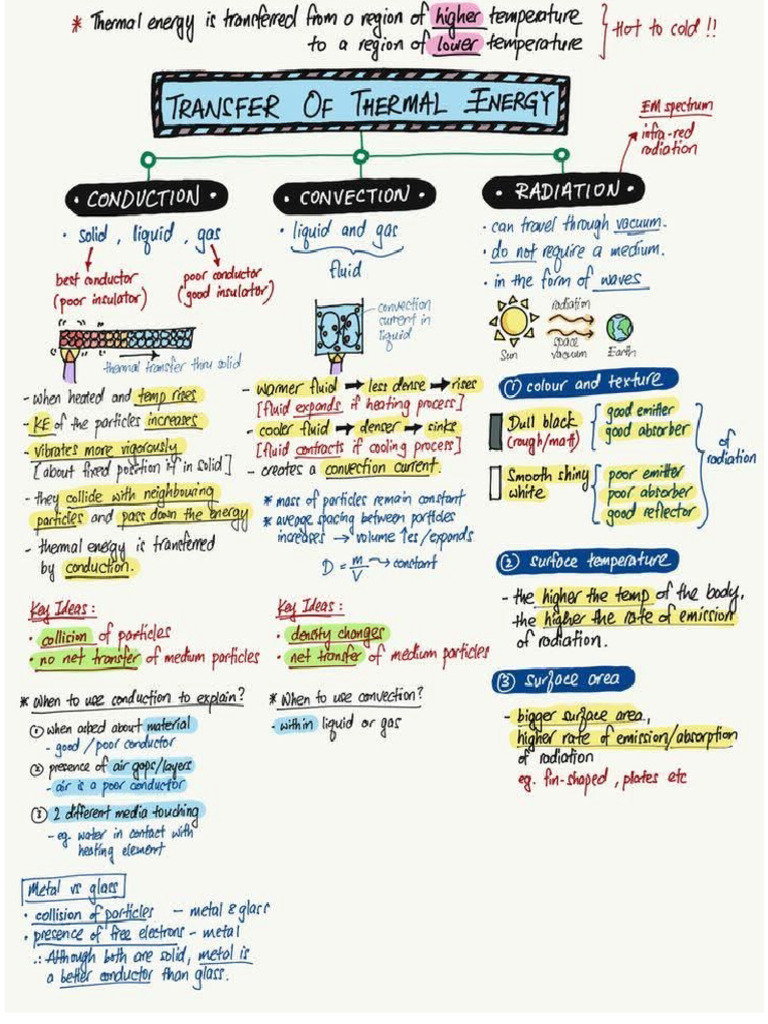 * Thermal energy is transferred from a region of higher temperature
to a region of lower temperature
Hot to cold !!
TRANSFER OF THERMAL ENERGY
EM spectrum
infra-red
radiation
• CONDUCTION •
• solid, liquid, gas
best conductor
(poor insulator)
poor conductor
(good insulator)
thermal transfer thru solid
- when heated and temp rises
- KE of the particles increases
- vibrates more vigorously
[about fixed position if in solid]
- they collide with neighbouring
particles and pass down the energy
- thermal energy is transferred
by conduction.
Key Ideas:
• collision of particles
• no net transfer of medium particles
* When to use conduction to explain?
① when asked about material
- good/poor conductor
② presence of air gaps/layers
- air is a poor conductor
③ 2 different media touching
- eg. water in contact with
heating element
Metal vs glass
• collision of particles — metal & glass
• presence of free electrons - metal
∴ Although both are solid, metal is
a better conductor than glass.
• CONVECTION •
• liquid and gas
fluid
convection
current in
liquid
- warmer fluid → less dense → rises
[fluid expands if heating process]
- cooler fluid → denser → sinks
[fluid contracts if cooling process]
- creates a convection current.
* mass of particles remain constant
* average spacing between particles
increases → volume ↑es/expands
D = m/V → constant
Key Ideas:
• density changes
• net transfer of medium particles
* When to use convection?
- within liquid or gas
• RADIATION •
• can travel through vacuum.
• do not require a medium.
• in the form of waves
radiation
space
vacuum
Sun
Earth
① colour and texture
Dull black
(rough/matt)
good emitter
good absorber
Smooth shiny
white
poor emitter
poor absorber
good reflector
of
radiation
② surface temperature
- the higher the temp of the body,
the higher the rate of emission
of radiation.
③ surface area
- bigger surface area,
higher rate of emission/absorption
of radiation
eg. fin-shaped, plates etc